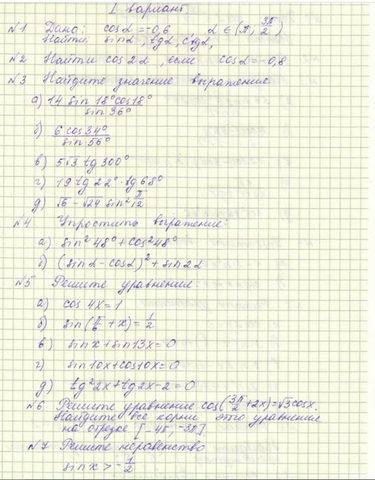 I вариант
№1 Дано: cosα=-0,6 α ∈ (π; 3π/2)
Найти: sinα, tgα, ctgα.
№2 Найти cos2α, если cosα=-0,8
№3 Найдите значение выражения:
а) 14 sin18°cos18° / sin36°
б) 6 cos34° / sin56°
в) 5√3 tg300°
г) 19 tg22°·tg68°
д) √6 - √24 sin² π/12
№4 Упростить выражение:
а) sin²48°+cos²48°
б) (sinα-cosα)²+sin2α
№5 Решите уравнения
а) cos4x=1
б) sin(π/6+x)=1/2
в) sinx+sin13x=0
г) sin10x+cos10x=0
д) tg²2x+tg2x-2=0
№6 Решите уравнение cos(3π/2+2x)=√3cosx.
Найдите все корни этого уравнения
на отрезке [-4π; -3π]
№7 Решите неравенство
sinx>-1/2